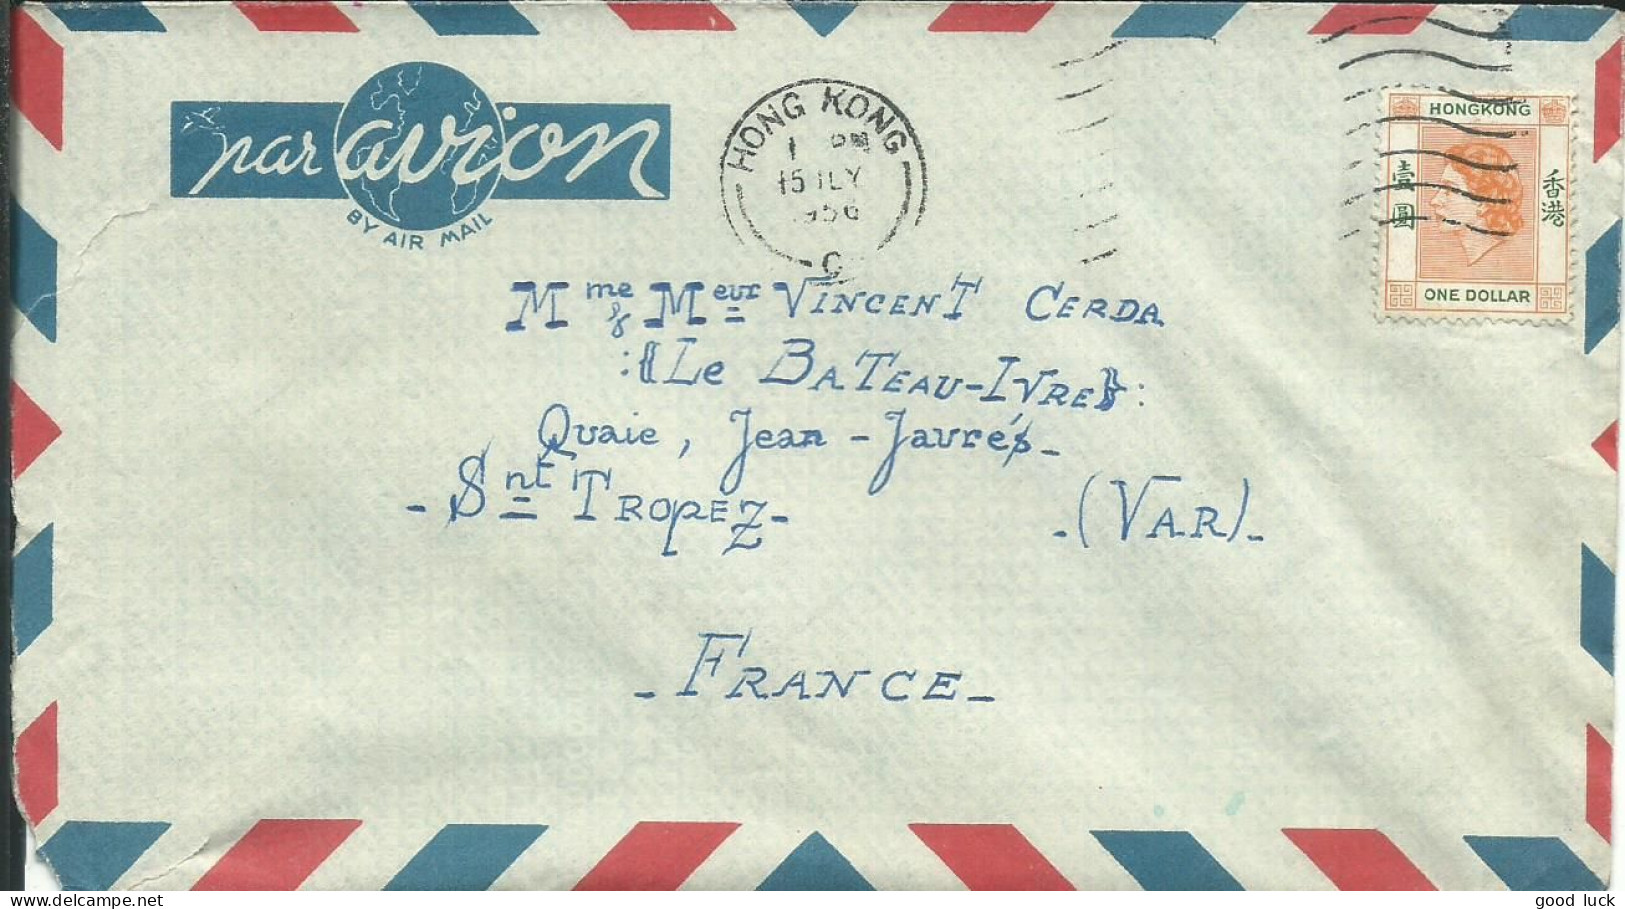 par avion
BY AIR MAIL
HONG KONG
1 PM
15 JLY
1956
C
HONGKONG
壹圓
香港
ONE DOLLAR
Mme & Meur VINCENT CERDA
:«Le BATEAU-IVRE»:
Quaie, Jean-Jaurés_
-Snt TROPEZ- -(VAR)-
-FRANCE-
good luck